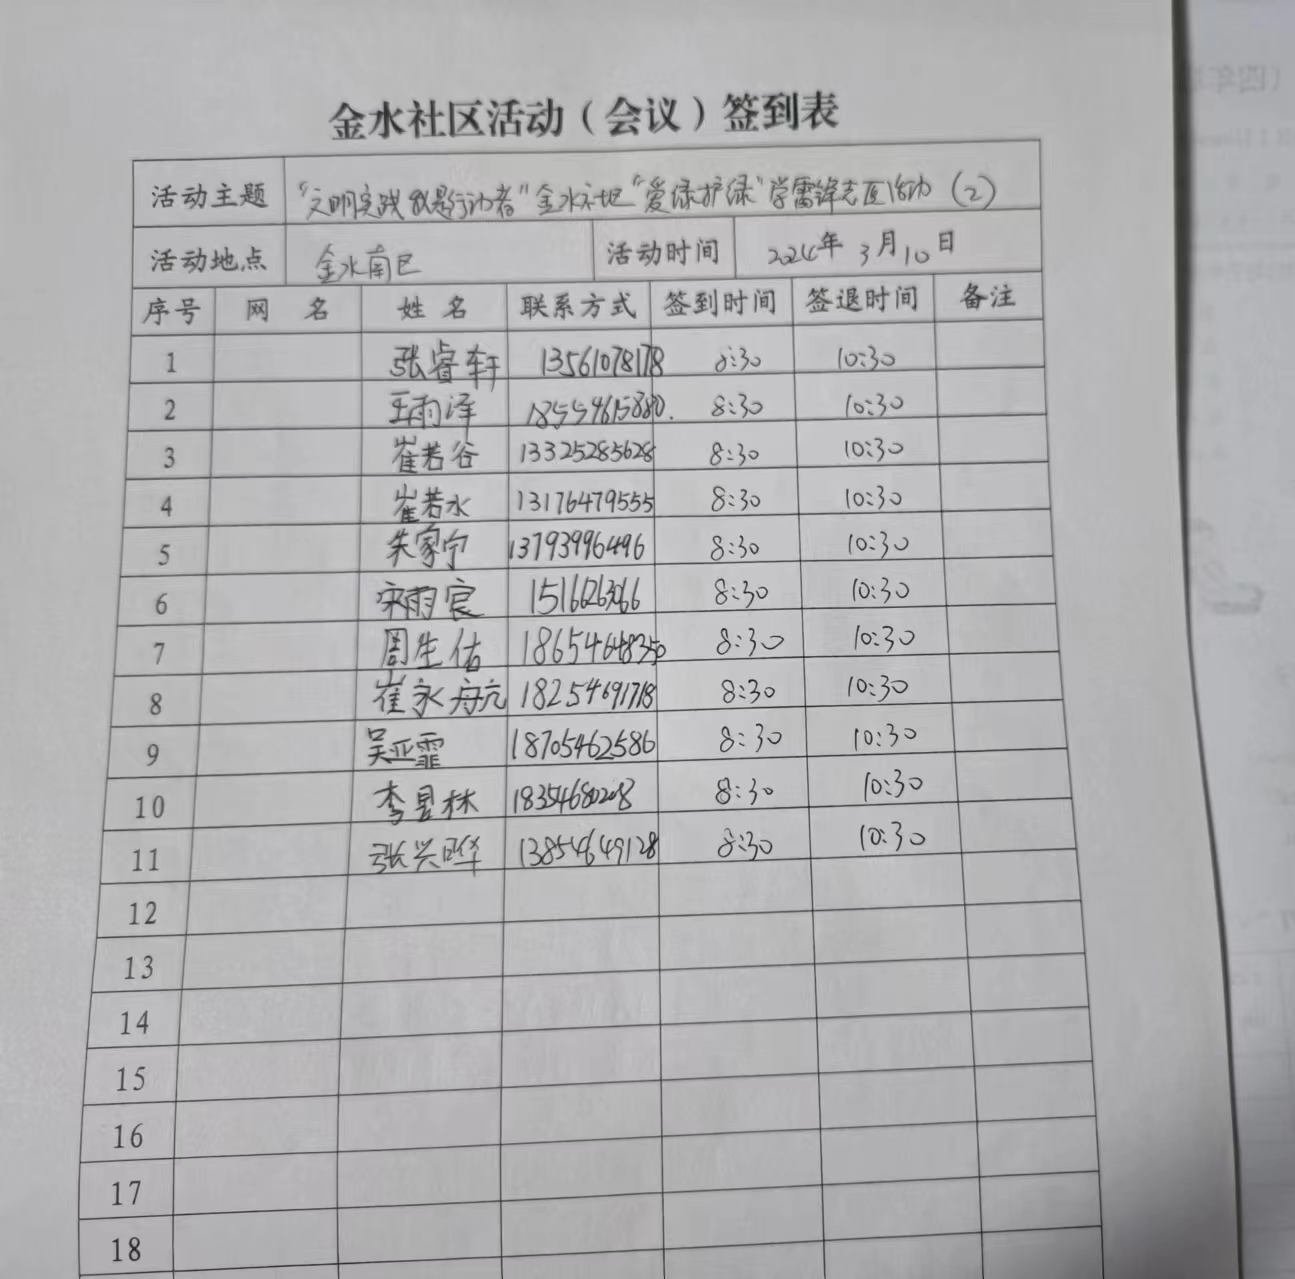 金水社区活动（会议）签到表
活动主题 "文明实践 我是行动者"金水社地"爱绿护绿"学雷锋志愿活动（2）
活动地点 金水南区 活动时间 2024年 3月10日
序号 网 名 姓 名 联系方式 签到时间 签退时间 备注
1 张睿轩 13561078178 8:30 10:30
2 王雨泽 18554615880. 8:30 10:30
3 崔若谷 13325285628 8:30 10:30
4 崔若水 13176479555 8:30 10:30
5 朱家宁 13793996496 8:30 10:30
6 宋雨宸 8:30 10:30
7 周生佑 18654648350 8:30 10:30
8 崔永航 18254691718 8:30 10:30
9 吴亚霏 18705462586 8:30 10:30
10 李昱林 18354680208 8:30 10:30
11 张兴晔 13854649128 8:30 10:30
12
13
14
15
16
17
18